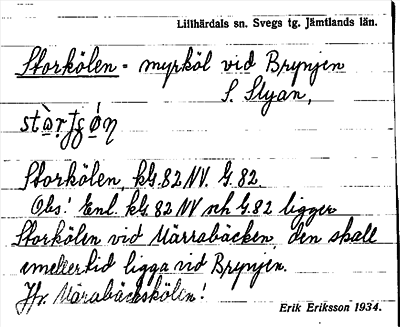 Lillhärdals sn. Svegs tg. Jämtlands län.
Storkölen - myrköl vid Brynjen
S. Slyan,
Storkölen, kG. 82 NV. G. 82.
Obs! Enl. kG. 82 NV och G. 82 ligger
Storkölen vid Märrabäcken, den skall
emellertid ligga vid Brynjen.
Jfr. Märabäckskölen!
Erik Eriksson 1934.